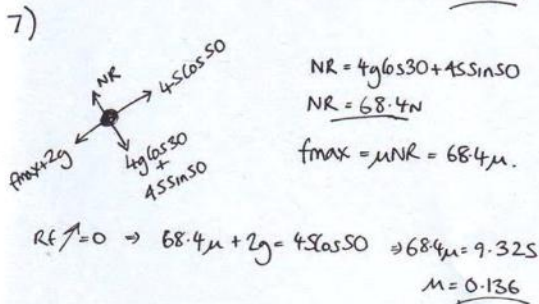 7)
NR
45cos50
fmax+2g
4gcos30
+
45sin50
NR = 4gcos30+45sin50
NR = 68.4N
fmax = μNR = 68.4μ.
RF↗=0 ⇒ 68.4μ + 2g = 45cos50 ⇒ 68.4μ = 9.325
μ = 0.136